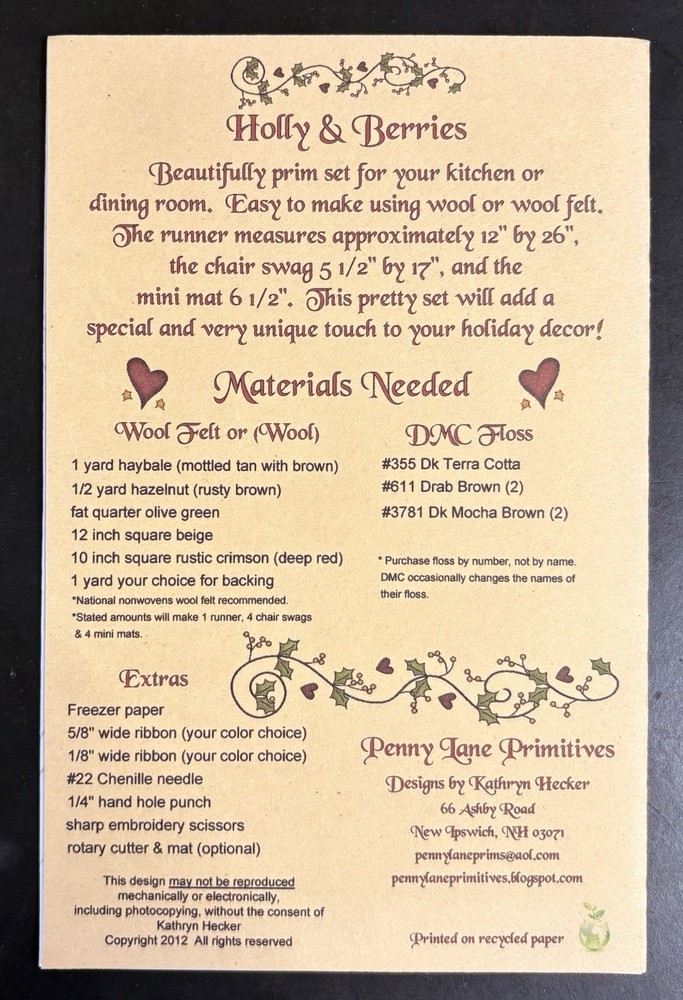 Holly & Berries
Beautifully prim set for your kitchen or
dining room. Easy to make using wool or wool felt.
The runner measures approximately 12" by 26",
the chair swag 5 1/2" by 17", and the
mini mat 6 1/2". This pretty set will add a
special and very unique touch to your holiday decor!
Materials Needed
Wool Felt or (Wool)
1 yard haybale (mottled tan with brown)
1/2 yard hazelnut (rusty brown)
fat quarter olive green
12 inch square beige
10 inch square rustic crimson (deep red)
1 yard your choice for backing
*National nonwovens wool felt recommended.
*Stated amounts will make 1 runner, 4 chair swags
& 4 mini mats.
DMC Floss
#355 Dk Terra Cotta
#611 Drab Brown (2)
#3781 Dk Mocha Brown (2)
* Purchase floss by number, not by name.
DMC occasionally changes the names of
their floss.
Extras
Freezer paper
5/8" wide ribbon (your color choice)
1/8" wide ribbon (your color choice)
#22 Chenille needle
1/4" hand hole punch
sharp embroidery scissors
rotary cutter & mat (optional)
This design may not be reproduced
mechanically or electronically,
including photocopying, without the consent of
Kathryn Hecker
Copyright 2012 All rights reserved
Penny Lane Primitives
Designs by Kathryn Hecker
66 Ashby Road
New Ipswich, NH 03071
pennylaneprims@aol.com
pennylaneprimitives.blogspot.com
Printed on recycled paper